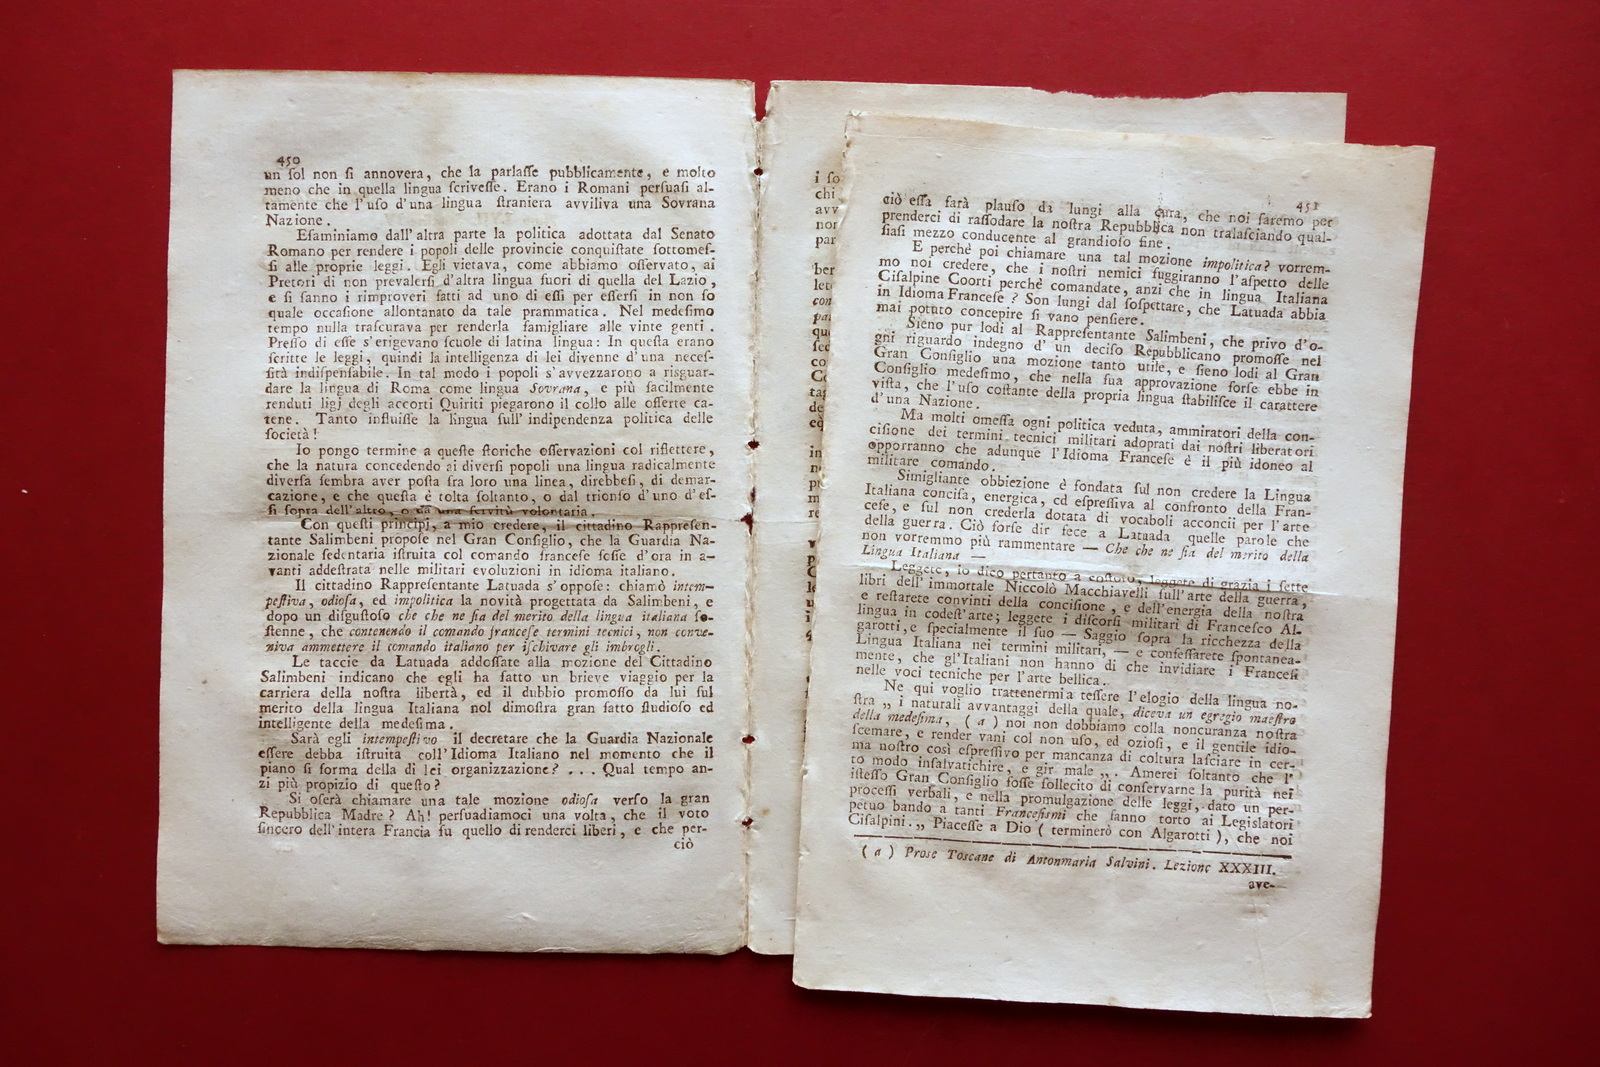 450
un ſol non ſi annovera, che la parlaſſe pubblicamente, e molto
meno che in quella lingua ſcriveſſe. Erano i Romani perſuaſi al-
tamente che l'uſo d'una lingua ſtraniera avviliva una Sovrana
Nazione.
Eſaminiamo dall'altra parte la politica adottata dal Senato
Romano per rendere i popoli delle provincie conquiſtate ſottomeſ-
ſi alle proprie leggi. Egli vietava, come abbiamo oſſervato, ai
Pretori di non prevalerſi d'altra lingua fuori di quella del Lazio,
e ſi ſanno i rimproveri fatti ad uno di eſſi per eſſerſi in non ſo
quale occaſione allontanato da tale prammatica. Nel medeſimo
tempo nulla traſcurava per renderla famigliare alle vinte genti.
Preſſo di eſſe s'erigevano ſcuole di latina lingua: In queſta erano
ſcritte le leggi, quindi la intelligenza di lei divenne d'una neceſ-
ſità indiſpenſabile. In tal modo i popoli s'avvezzarono a riſguar-
dare la lingua di Roma come lingua Sovrana, e più facilmente
renduti ligj degli accorti Quiriti piegarono il collo alle offerte ca-
tene. Tanto influiſſe la lingua ſull'indipendenza politica delle
ſocietà!
Io pongo termine a queſte ſtoriche oſſervazioni col riflettere,
che la natura concedendo ai diverſi popoli una lingua radicalmente
diverſa ſembra aver poſta fra loro una linea, direbbeſi, di demar-
cazione, e che queſta è tolta ſoltanto, o dal trionfo d'uno d'eſ-
ſi ſopra dell'altro, o da una ſervitù volontaria.
Con queſti principj, a mio credere, il cittadino Rappreſen-
tante Salimbeni propoſe nel Gran Conſiglio, che la Guardia Na-
zionale ſedentaria iſtruita col comando franceſe foſſe d'ora in a-
vanti addeſtrata nelle militari evoluzioni in idioma italiano.
Il cittadino Rappreſentante Latuada s'oppoſe: chiamò intem-
peſtiva, odioſa, ed impolitica la novità progettata da Salimbeni, e
dopo un diſguſtoſo che che ne ſia del merito della lingua italiana ſo-
ſtenne, che contenendo il comando franceſe termini tecnici, non conve-
niva ammettere il comando italiano per iſchivare gli imbrogli.
Le taccie da Latuada addoſſate alla mozione del Cittadino
Salimbeni indicano che egli ha fatto un brieve viaggio per la
carriera della noſtra libertà, ed il dubbio promoſſo da lui ſul
merito della lingua Italiana nol dimoſtra gran fatto ſtudioſo ed
intelligente della medeſima.
Sarà egli intempeſtivo il decretare che la Guardia Nazionale
eſſere debba iſtruita coll'Idioma Italiano nel momento che il
piano ſi forma della di lei organizzazione? . . . Qual tempo an-
zi più propizio di queſto?
Si oſerà chiamare una tale mozione odioſa verſo la gran
Repubblica Madre? Ah! perſuadiamoci una volta, che il voto
ſincero dell'intera Francia fu quello di renderci liberi, e che per-
ciò
i ſo
chi
avv
non
par
451
ciò eſſa farà plauſo da lungi alla cura, che noi faremo per
prenderci di raſſodare la noſtra Repubblica non tralaſciando qual-
ſiaſi mezzo conducente al grandioſo fine.
E perchè poi chiamare una tal mozione impolitica? vorrem-
mo noi credere, che i noſtri nemici fuggiranno l'aſpetto delle
Ciſalpine Coorti perchè comandate, anzi che in lingua Italiana
in Idioma Franceſe? Son lungi dal ſoſpettare, che Latuada abbia
mai potuto concepire ſi vano penſiere.
Sieno pur lodi al Rappreſentante Salimbeni, che privo d'o-
gni riguardo indegno d'un deciſo Repubblicano promoſſe nel
Gran Conſiglio una mozione tanto utile, e ſieno lodi al Gran
Conſiglio medeſimo, che nella ſua approvazione forſe ebbe in
viſta, che l'uſo coſtante della propria lingua ſtabiliſce il carattere
d'una Nazione.
Ma molti omeſſa ogni politica veduta, ammiratori della con-
ciſione dei termini tecnici militari adoprati dai noſtri liberatori
opporranno che adunque l'Idioma Franceſe è il più idoneo al
militare comando.
Simigliante obbiezione è fondata ſul non credere la Lingua
Italiana conciſa, energica, ed eſpreſſiva al confronto della Fran-
ceſe, e ſul non crederla dotata di vocaboli acconcii per l'arte
della guerra. Ciò forſe dir fece a Latuada quelle parole che
non vorremmo più rammentare — Che che ne ſia del merito della
Lingua Italiana —
Leggete, io dico pertanto a coſtoro, leggete di grazia i ſette
libri dell'immortale Niccolò Macchiavelli ſull'arte della guerra,
e reſtarete convinti della conciſione, e dell'energia della noſtra
lingua in codeſt'arte; leggete i diſcorſi militari di Franceſco Al-
garotti, e ſpecialmente il ſuo — Saggio ſopra la ricchezza della
Lingua Italiana nei termini militari, — e confeſſarete ſpontanea-
mente, che gl'Italiani non hanno di che invidiare i Franceſi
nelle voci tecniche per l'arte bellica.
Ne qui voglio trattenermi a teſſere l'elogio della lingua no-
ſtra „ i naturali avvantaggi della quale, diceva un egregio maeſtro
della medeſima, (a) noi non dobbiamo colla noncuranza noſtra
ſcemare, e render vani col non uſo, ed ozioſi, e il gentile idio-
ma noſtro così eſpreſſivo per mancanza di coltura laſciare in cer-
to modo inſalvatichire, e gir male „. Amerei ſoltanto che l'
iſteſſo Gran Conſiglio foſſe ſollecito di conſervarne la purità nei
proceſſi verbali, e nella promulgazione delle leggi, dato un per-
petuo bando a tanti Franceſiſmi che fanno torto ai Legislatori
Ciſalpini. „ Piaceſſe a Dio (terminerò con Algarotti), che noi
(a) Proſe Toſcane di Antonmaria Salvini. Lezione XXXIII.
ave-